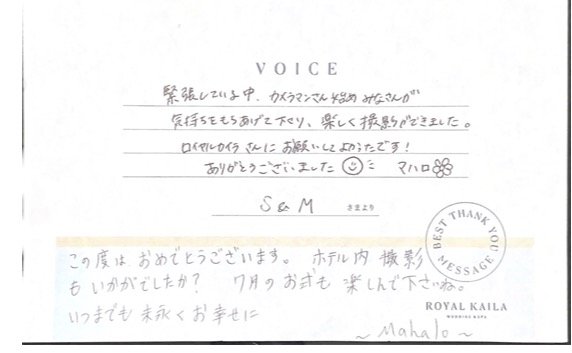 VOICE
緊張している中、カメラマンさん始め みなさんが
気持ちをもちあげて下さり、楽しく撮影ができました。
ロイヤルカイラさんにお願いしてよかったです！
ありがとうございました マハロ
S&M さまより
BEST THANK YOU MESSAGE
この度は おめでとうございます。 ホテル内 撮影
も いかがでしたか？ 7月の お式も 楽しんで下さいね。
いつまでも 末永く お幸せに
ROYAL KAILA
~ Mahalo ~